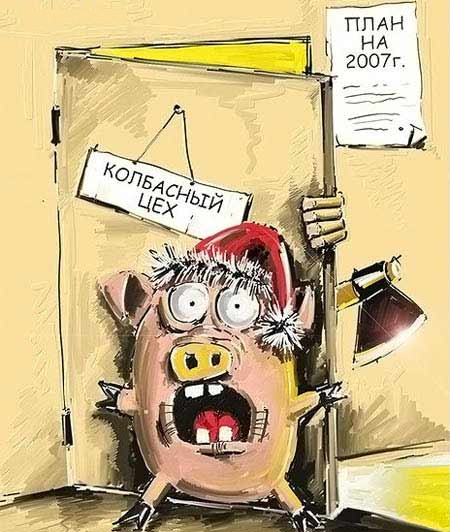 ПЛАН
НА
2007г.
КОЛБАСНЫЙ
ЦЕХ